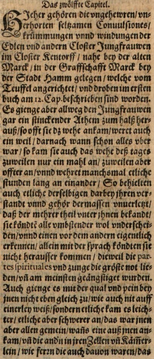 Das zwölffte Capitel.
Hieher gehören die ungehewren/un
erhorten seltzamen Convulsiones/
krümmungen unnd windungen der
Edlen und andern Closter Jungfrauwen
im Closter Kentorff / nahe bey der alten
Marck / in der Graffschafft Marck bey
der Stadt Hamm gelegen / welche vom
Teuffel angerichtet / und droben im ersten
buch am 12. Cap. beschrieben sind worden.
Es gienge aber allweg den Jungfrauwen
gar ein stinckender Athem zum halß her-
auß/so offt sie es wehe ankam/weret auch
ein weil / darnach wann schon alles vor-
war / so kam sie auch das wehe deß tages
zuweilen nur ein mahl an/zuweilen aber
offter an/unnd wehret manchsmal etliche
stunden lang an einander / So behielten
auch etliche derselbigen darbey ihren ver-
stande vnnd gehör dermassen unverletzt/
daß der mehrer theil unter jhnen bekandt/
sie köndte alle umbstender wol underschei-
den/unnd einen vor dem andern eigentlich
erkennen/allein mit der sprach köndten sie
nicht herausser kommen / dieweil die par
tes spirituales und zunge die gröste not litte
den/vñ am meisten geängstiget wurden.
Auch gienge es mit der qual und pein bey
jnen nicht eben gleich zu/wie auch nit auff
einerley weiß/sondern etliche kam es leich-
ter/etliche aber schwerer an/das war jnen
aber allen gemein/wañs eine auß jnen an-
kam/vñ die andn in jren Zellen vñ Kämer
lein / wie fern die auch davon waren/dan